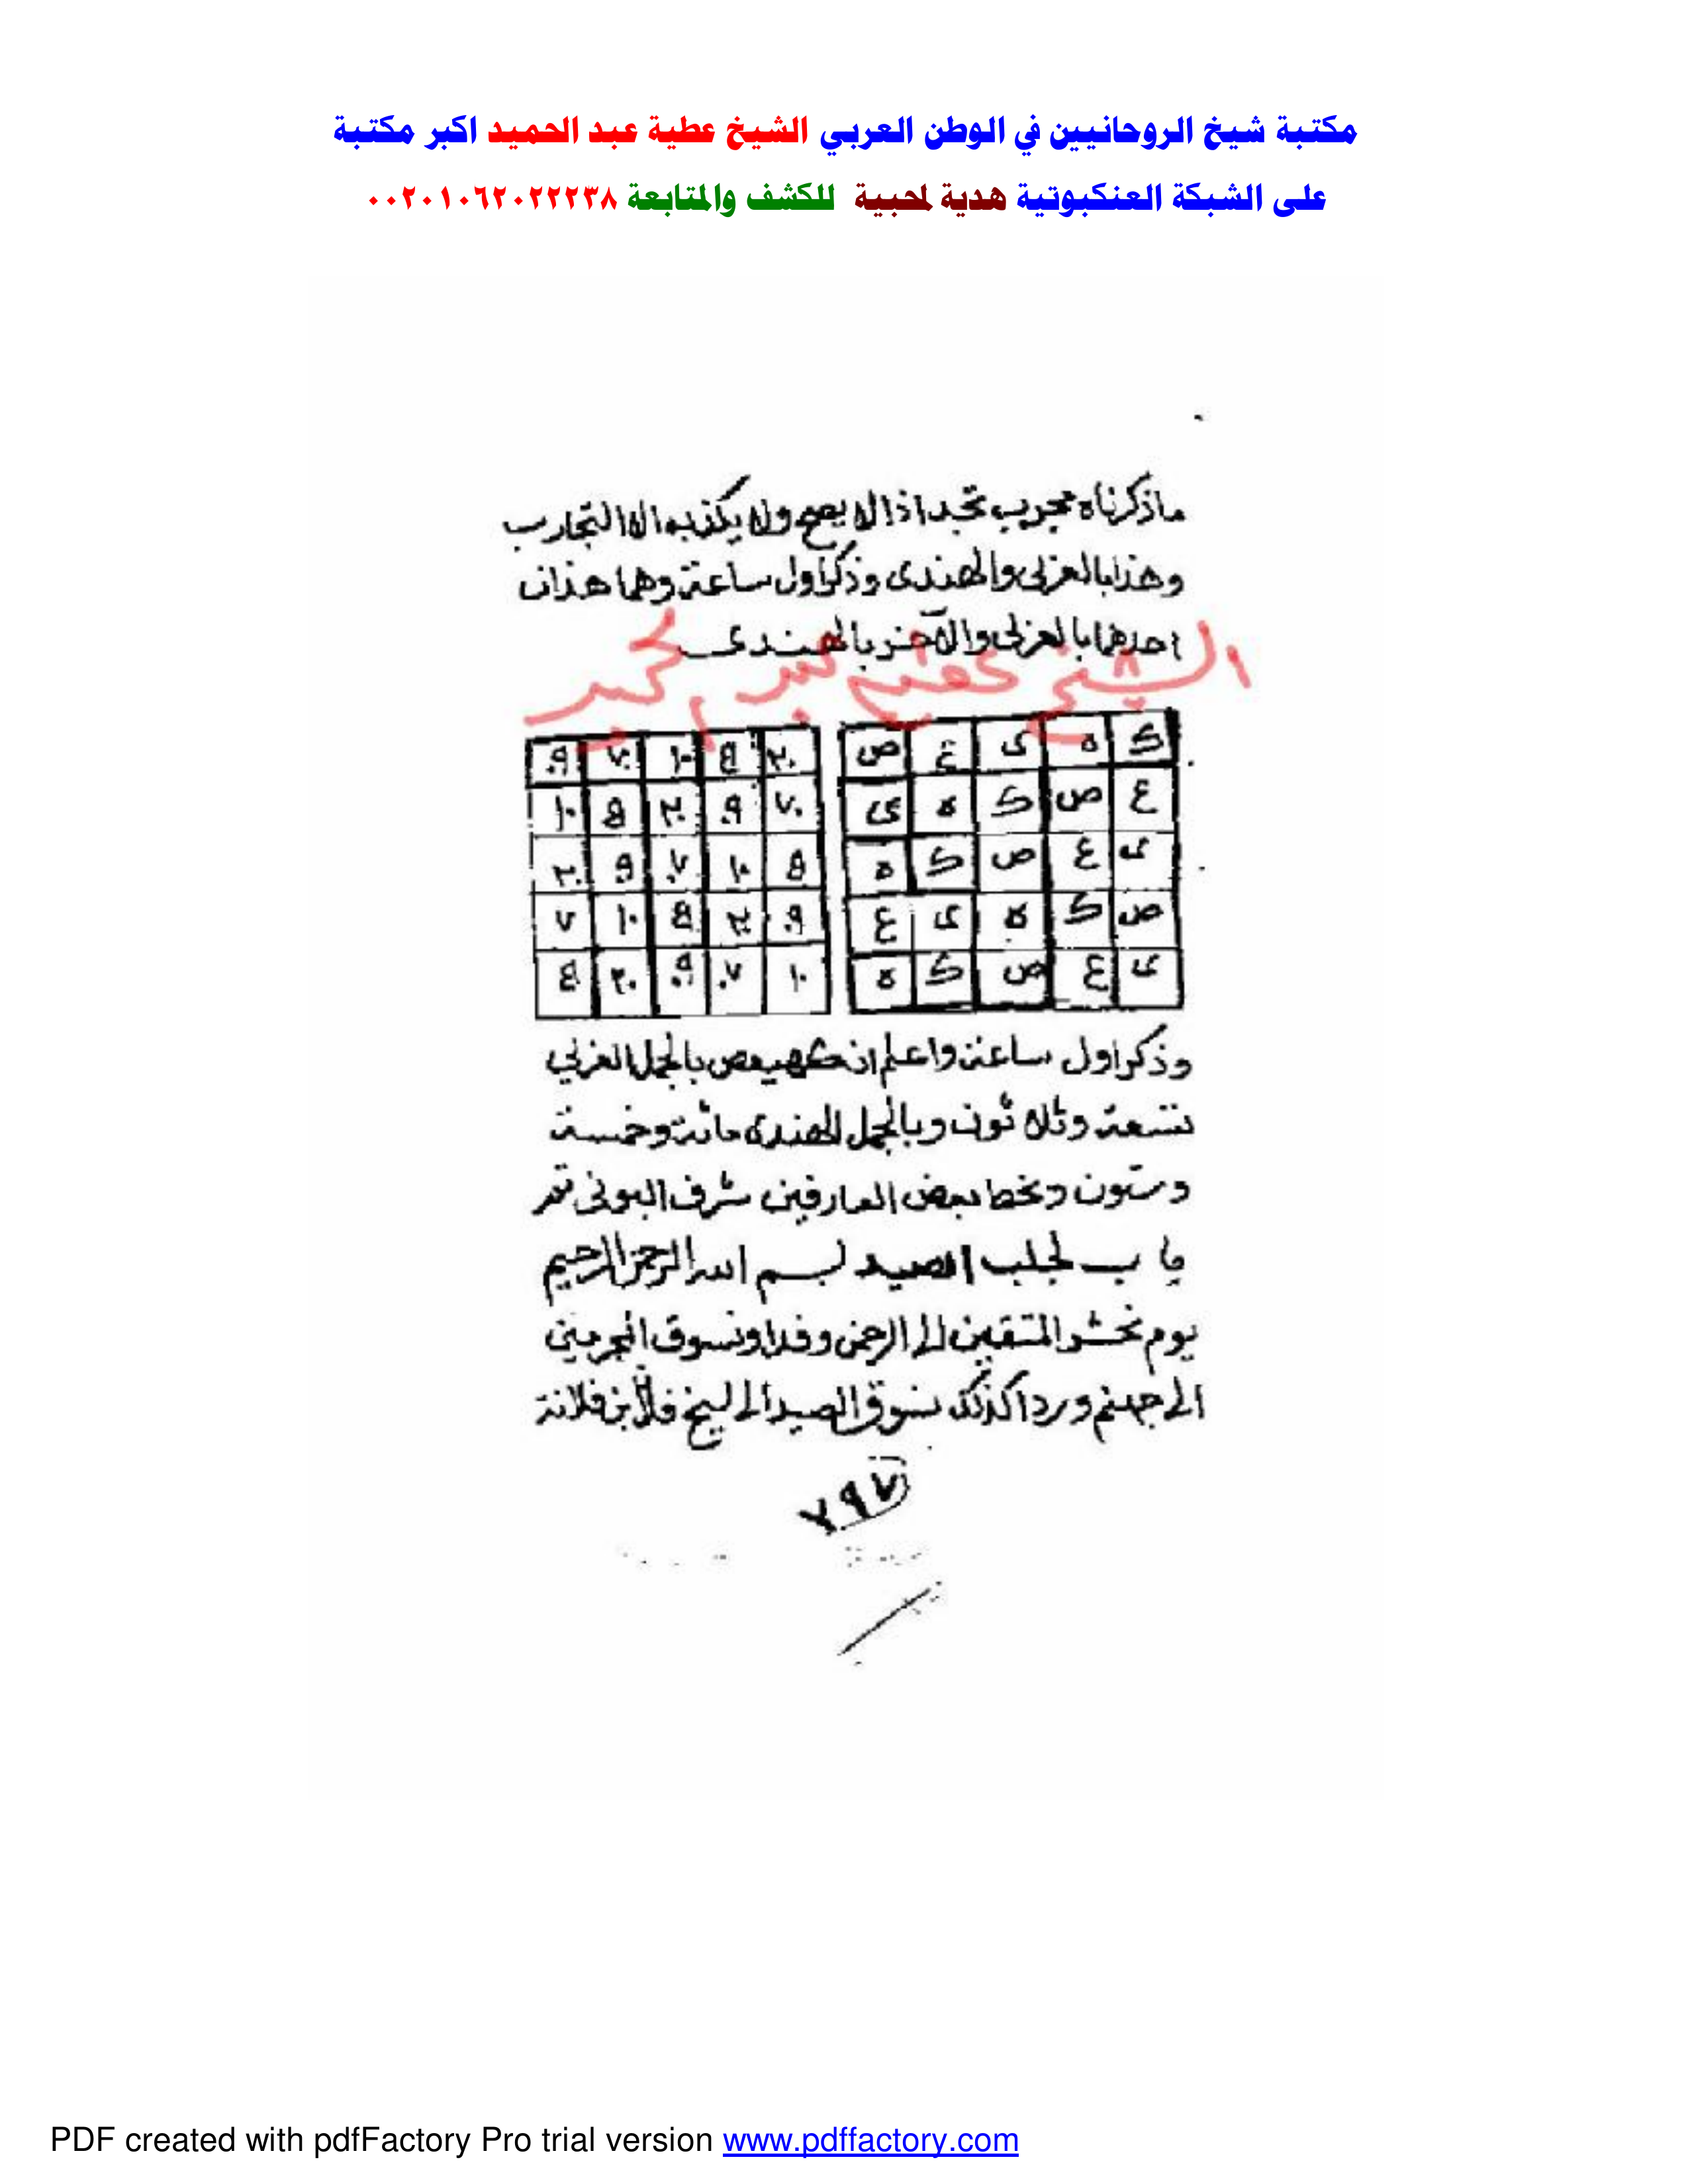 مكتبة شيخ الروحانيين في الوطن العربي الشيخ عطية عبد الحميد اكبر مكتبة
على الشبكة العنكبوتية هدية لمحبية للكشف والمتابعة ٠٠٢٠١٠٦٢٠٢٢٢٣٨
ماذكرناه مجرب تجد اذالا يصح ولا يكذبه الا التجارب
وهذا بالعزلى والهندى وذكر اول ساعة وهما هذان
احدهما بالعزلى والآخر بالهندى
ك ه ى ع ص
ع ص ك ه ى
ى ع ص ك ه
ص ك ه ى ع
ى ع ص ك ه
وذكر اول ساعة واعلم ان كهيعص بالجمل العزلي
تسعة وثلاثون وبالجمل الهندى مائة وخمسة
وستون وبخط بعض العارفين شرف البونى تمر
باب لجلب الصيد بسم الله الرحمن الرحيم
يوم نحشر المتقين الى الرحمن وفدا ونسوق المجرمين
الى جهنم وردا كذلك نسوق الصيد الى فلان بن فلانة
٧٩٧
PDF created with pdfFactory Pro trial version www.pdffactory.com